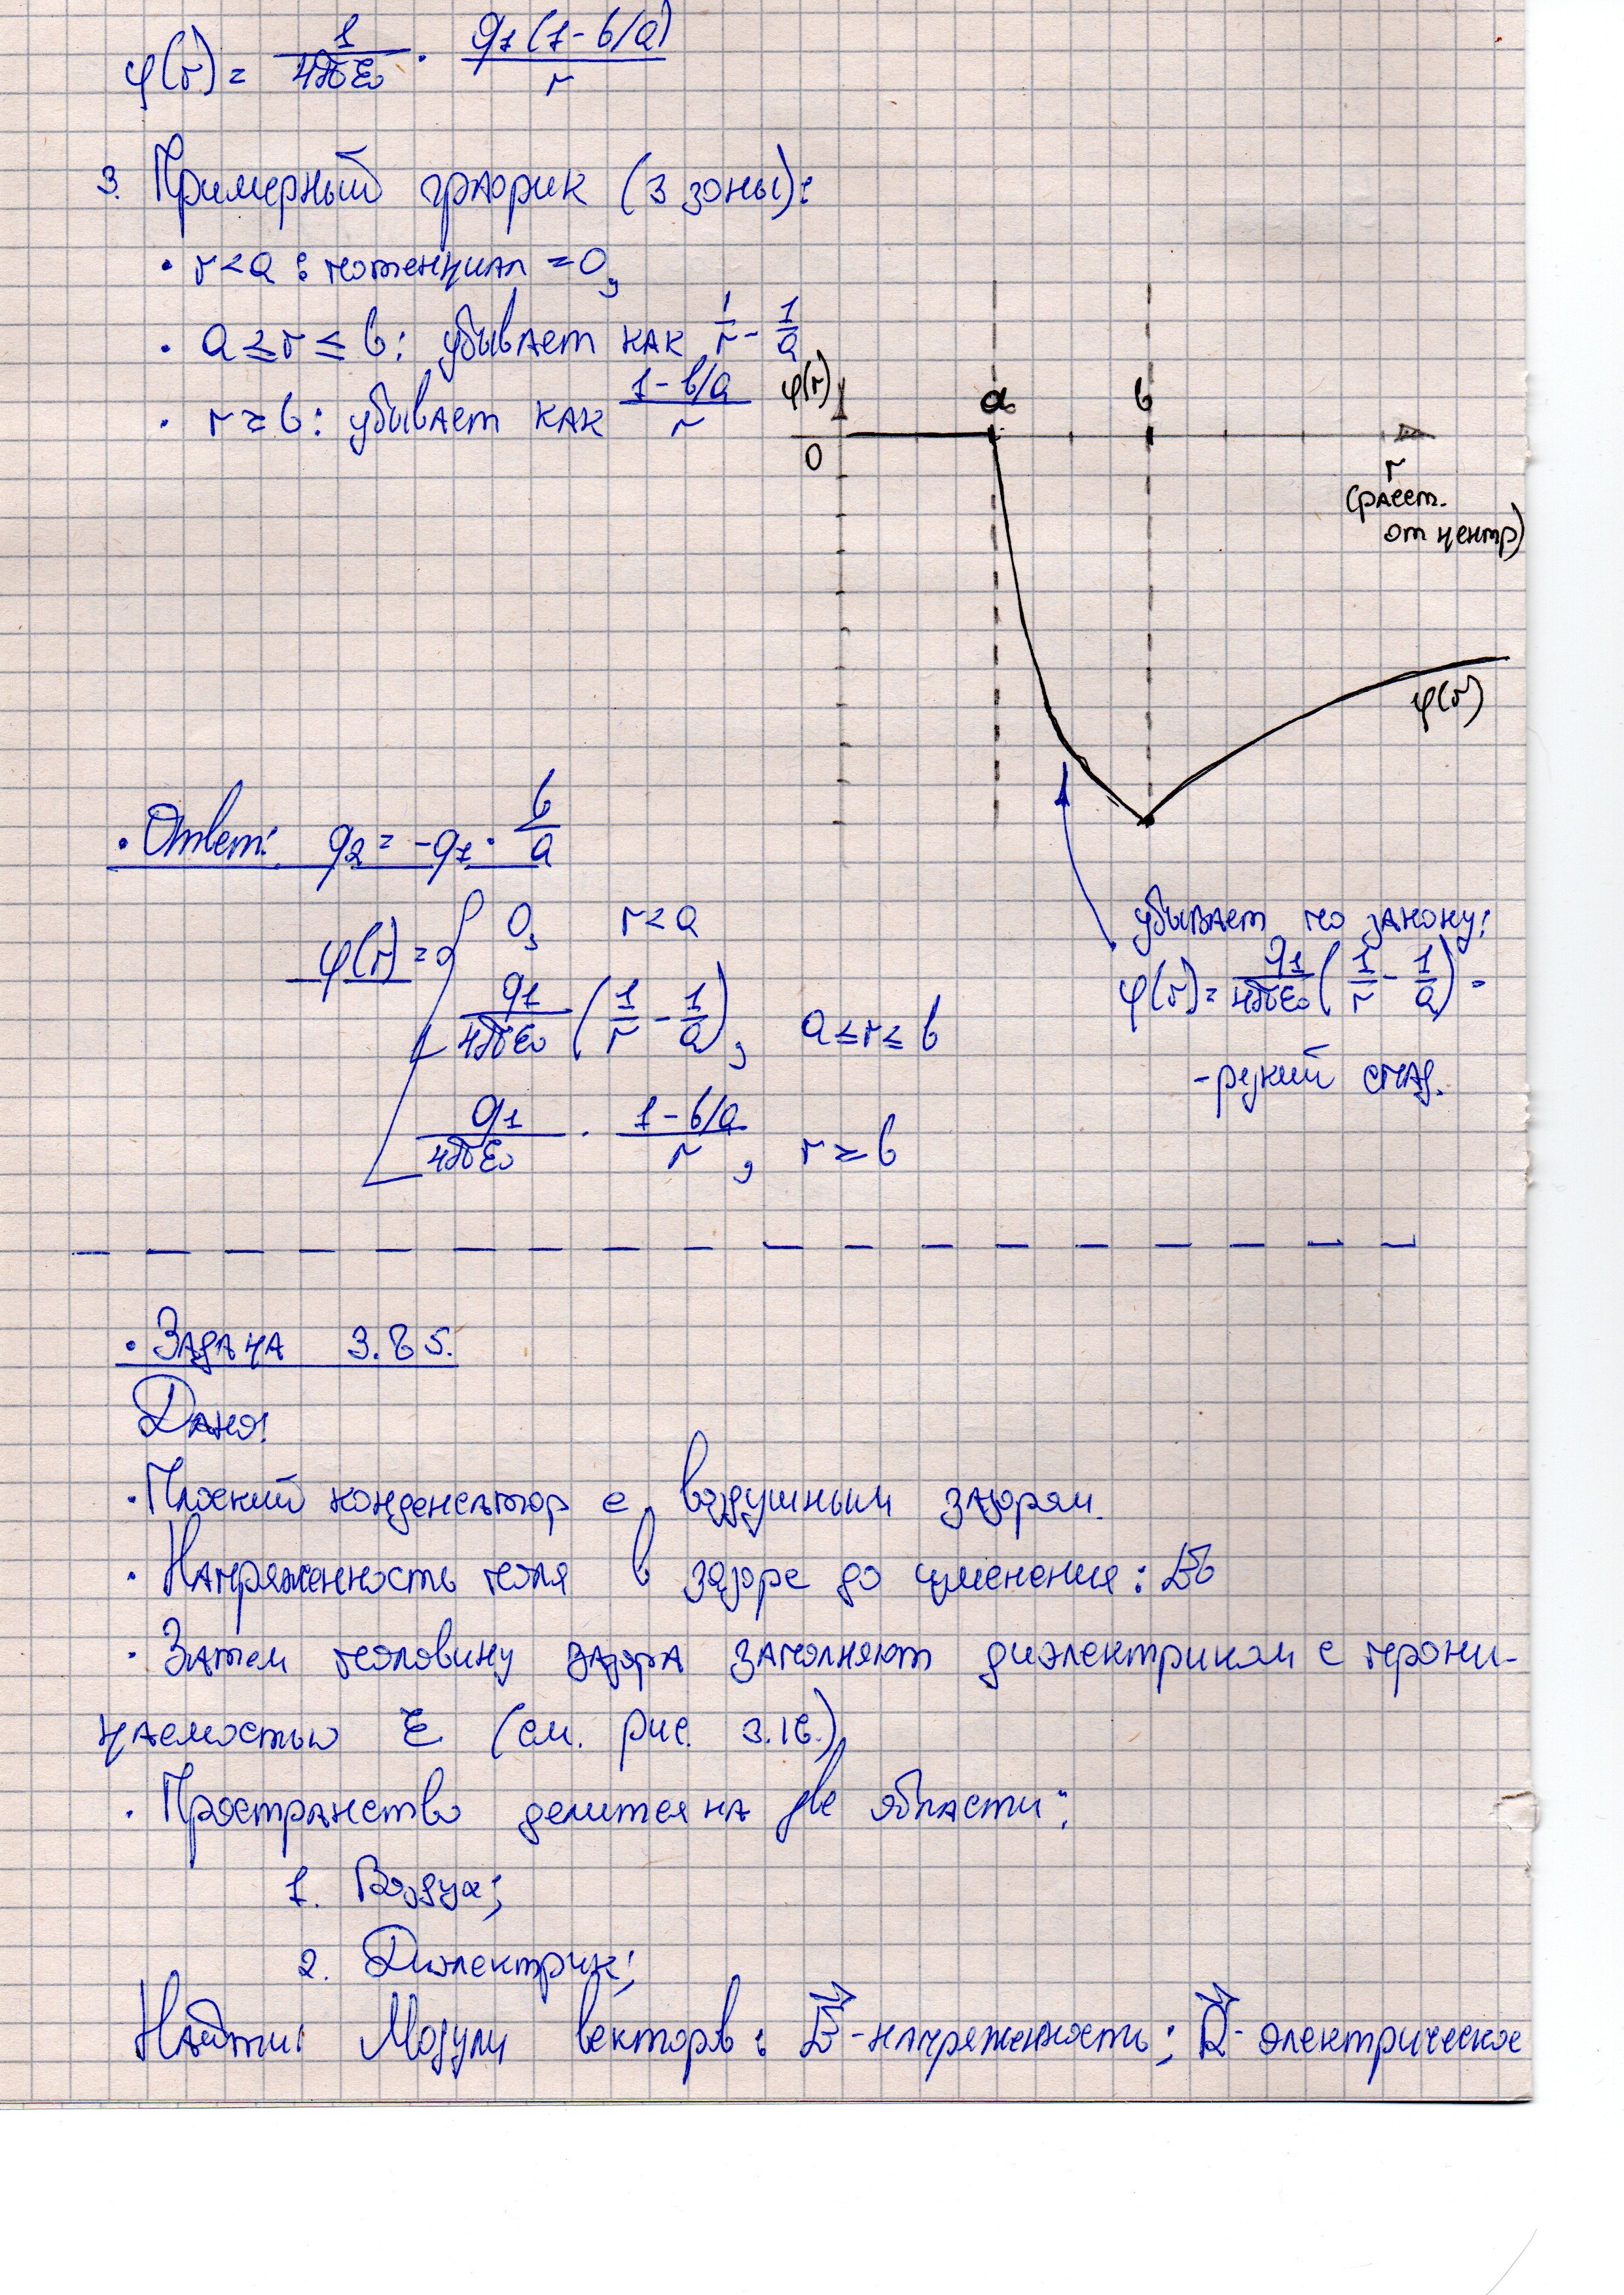 φ(r) = 1/4πε₀ · q₁(1 - b/a)/r
3. Примерный график (3 зоны):
• r < a : потенциал = 0,
• a ≤ r ≤ b: убывает как 1/r - 1/a
• r ≥ b: убывает как (1 - b/a)/r
φ(r)
a
b
0
r
(расст.
от центр)
φ(r)
• Ответ: q₂ = -q₁ · b/a
φ(r) = { 0, r < a
q₁/4πε₀ (1/r - 1/a), a ≤ r ≤ b
q₁/4πε₀ · (1 - b/a)/r, r ≥ b
убывает по закону:
φ(r) = q₁/4πε₀ (1/r - 1/a) -
- резкий спад.
• Задача 3.85.
Дано:
• Плоский конденсатор с воздушным зазором.
• Напряженность поля в зазоре до изменения: E₀
• Затем половину зазора заполняют диэлектриком с прони-
цаемостью ε (см. рис. 3.16.)
• Пространство делится на две области:
1. Воздух;
2. Диэлектрик;
Найти: Модули векторов: E⃗ - напряженность; D⃗ - электрическое